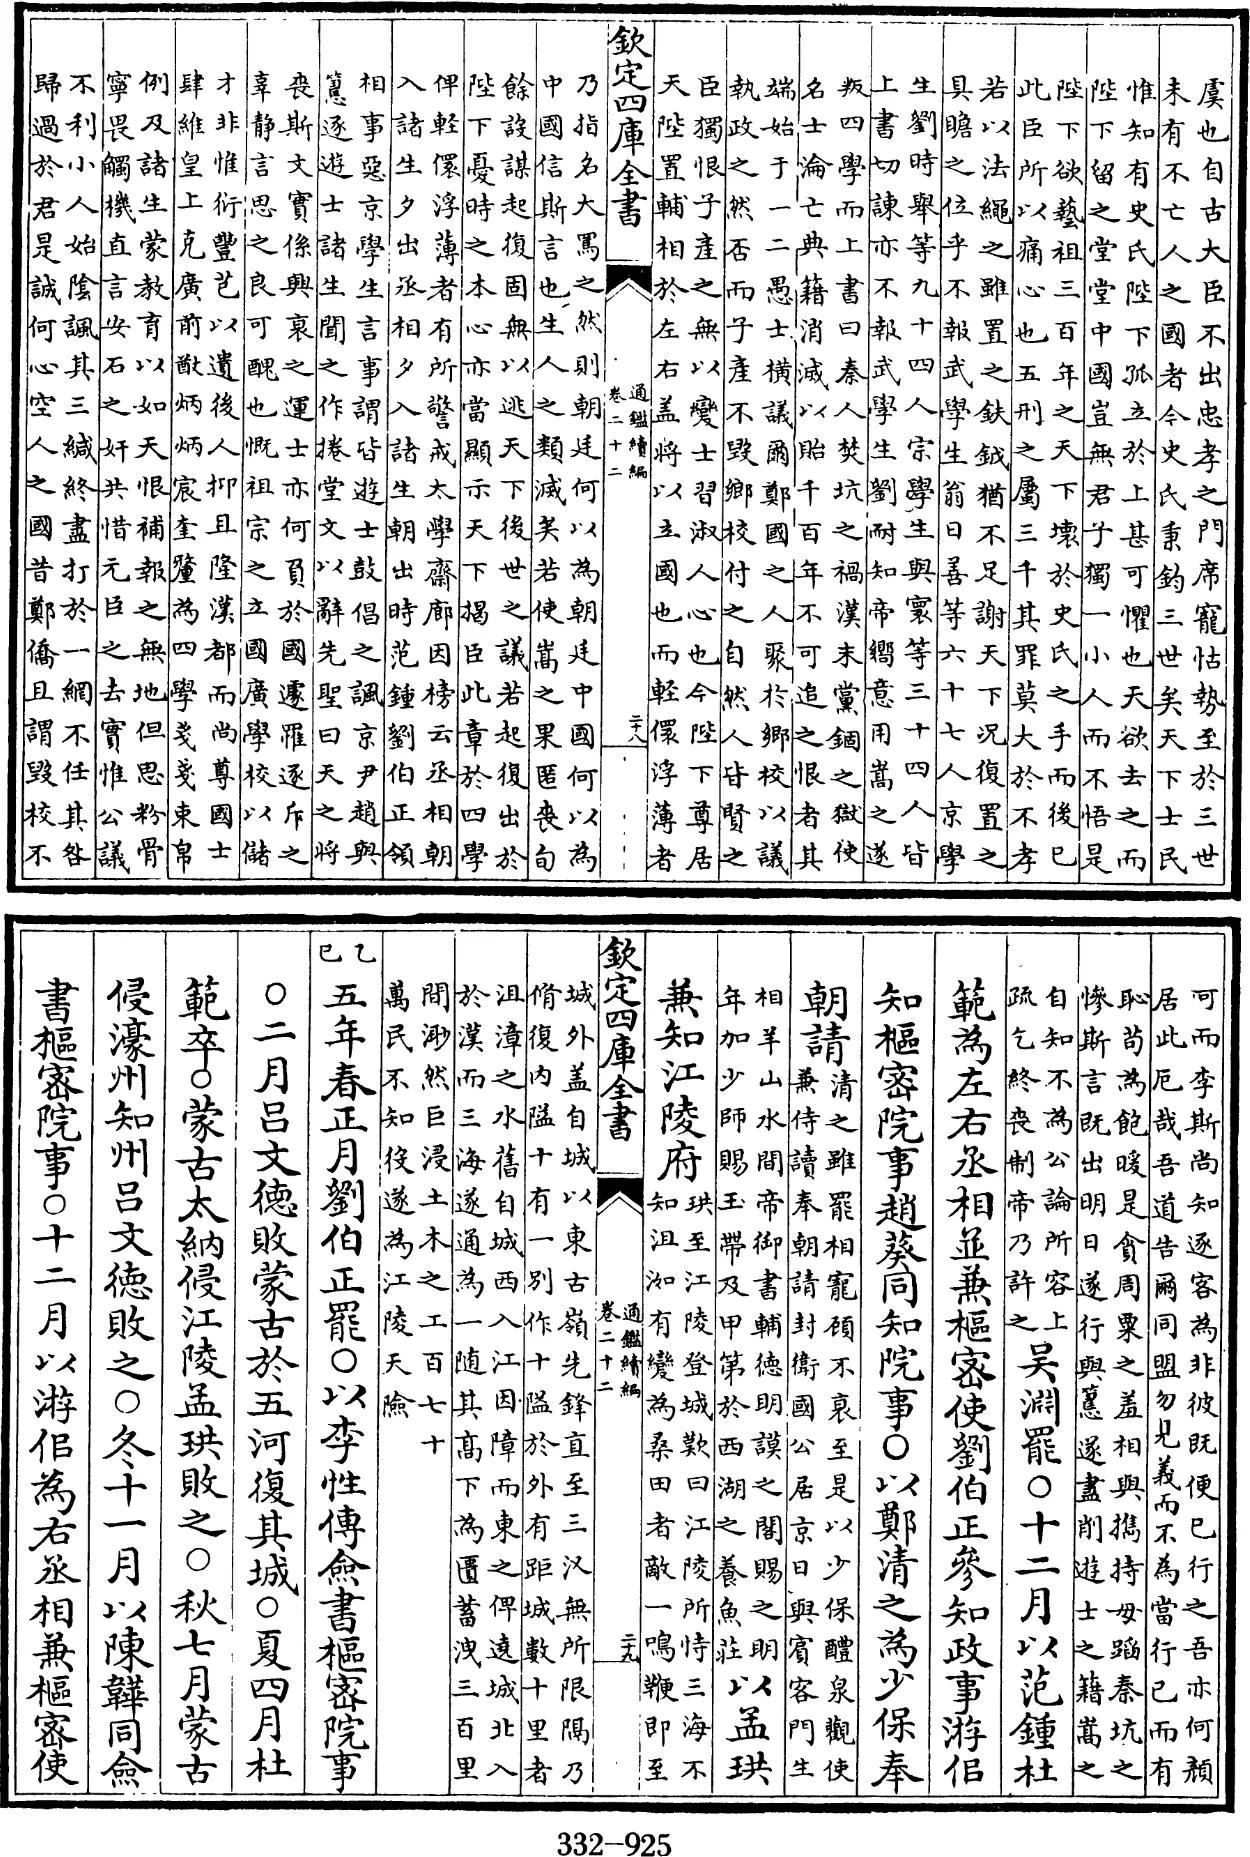 虞也自古大臣不出忠孝之門席寵怙勢至於三世
未有不亡人之國者今史氏秉鈞三世矣天下士民
惟知有史氏陛下孤立於上甚可懼也天欲去之而
陛下留之堂堂中國豈無君子獨一小人而不悟是
陛下欲藝祖三百年之天下壞於史氏之手而後已
此臣所以痛心也五刑之屬三千其罪莫大於不孝
若以法繩之雖置之鈇鉞猶不足謝天下況復置之
具瞻之位乎不報武學生翁日善等六十七人京學
生劉時舉等九十四人宗學生與寰等三十四人皆
上書切諫亦不報武學生劉耐知帝嚮意用嵩之遂
叛四學而上書曰秦人焚坑之禍漢末黨錮之獄使
名士淪亡典籍消滅以貽千百年不可追之恨者其
端始于一二愚士橫議爾鄭國之人聚於鄉校以議
執政之然否而子產不毀鄉校付之自然人皆賢之
臣獨恨子產之無以變士習淑人心也今陛下尊居
天陛置輔相於左右蓋將以立國也而輕儇浮薄者
欽定四庫全書
通鑑續編
卷二十二
二十八
乃指名大罵之然則朝廷何以為朝廷中國何以為
中國信斯言也生人之類滅矣若使嵩之果匿喪旬
餘設謀起復固無以逃天下後世之議若起復出於
陛下憂時之本心亦當顯示天下揭臣此章於四學
俾輕儇浮薄者有所警戒太學齋廊因榜云丞相朝
入諸生夕出丞相夕入諸生朝出時范鍾劉伯正領
相事惡京學生言事謂皆遊士鼓倡之諷京尹趙與
𥲅逐遊士諸生聞之作捲堂文以辭先聖曰天之將
喪斯文實係興衰之運士亦何負於國遽罹逐斥之
辜静言思之良可醜也慨祖宗之立國廣學校以儲
才非惟衍豐芑以遺後人抑且隆漢都而尚尊國士
肆維皇上克廣前猷炳炳宸奎釐為四學戔戔束帛
例及諸生蒙教育以如天恨補報之無地但思粉骨
寧畏觸機直言安石之奸共惜元臣之去實惟公議
不利小人始陰諷其三緘終盡打於一網不任其咎
歸過於君是誠何心空人之國昔鄭僑且謂毀校不
可而李斯尚知逐客為非彼既便已行之吾亦何顏
居此厄哉吾道告爾同盟勿見義而不為當行已而有
恥苟為飽暖是貪周粟之羞相與攜持毋蹈秦坑之
慘斯言既出明日遂行與𥲅遂盡削遊士之籍嵩之
自知不為公論所容上
疏乞終喪制帝乃許之
吳淵罷○十二月以范鍾杜
範為左右丞相並兼樞密使劉伯正參知政事游佀
知樞密院事趙葵同知院事○以鄭清之為少保奉
朝請
清之雖罷相寵頋不衰至是以少保醴泉觀使
兼侍讀奉朝請封衛國公居京日與賓客門生
相羊山水間帝御書輔德明謨之閣賜之明
年加少師賜玉帶及甲第於西湖之養魚莊
以孟珙
兼知江陵府
珙至江陵登城歎曰江陵所恃三海不
知沮洳有變為桑田者敵一鳴鞭即至
城外蓋自城以東古嶺先鋒直至三汊無所限隔乃
欽定四庫全書
通鑑續編
卷二十二
二十九
脩復内隘十有一別作十隘於外有距城數十里者
沮漳之水舊自城西入江因障而東之俾遶城北入
於漢而三海遂通為一随其高下為匱蓄洩三百里
間渺然巨浸土木之工百七十
萬民不知役遂為江陵天險
乙巳
五年春正月劉伯正罷○以李性傳僉書樞密院事
○二月吕文德敗蒙古於五河復其城○夏四月杜
範卒○蒙古太納侵江陵孟珙敗之○秋七月蒙古
侵濠州知州吕文德敗之○冬十一月以陳韡同僉
書樞密院事○十二月以游佀為右丞相兼樞密使
332-925